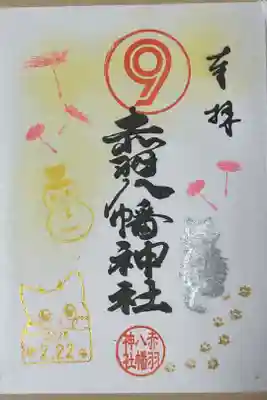 奉拝
⑨
赤羽八幡神社
赤羽
八幡
神社
2.22